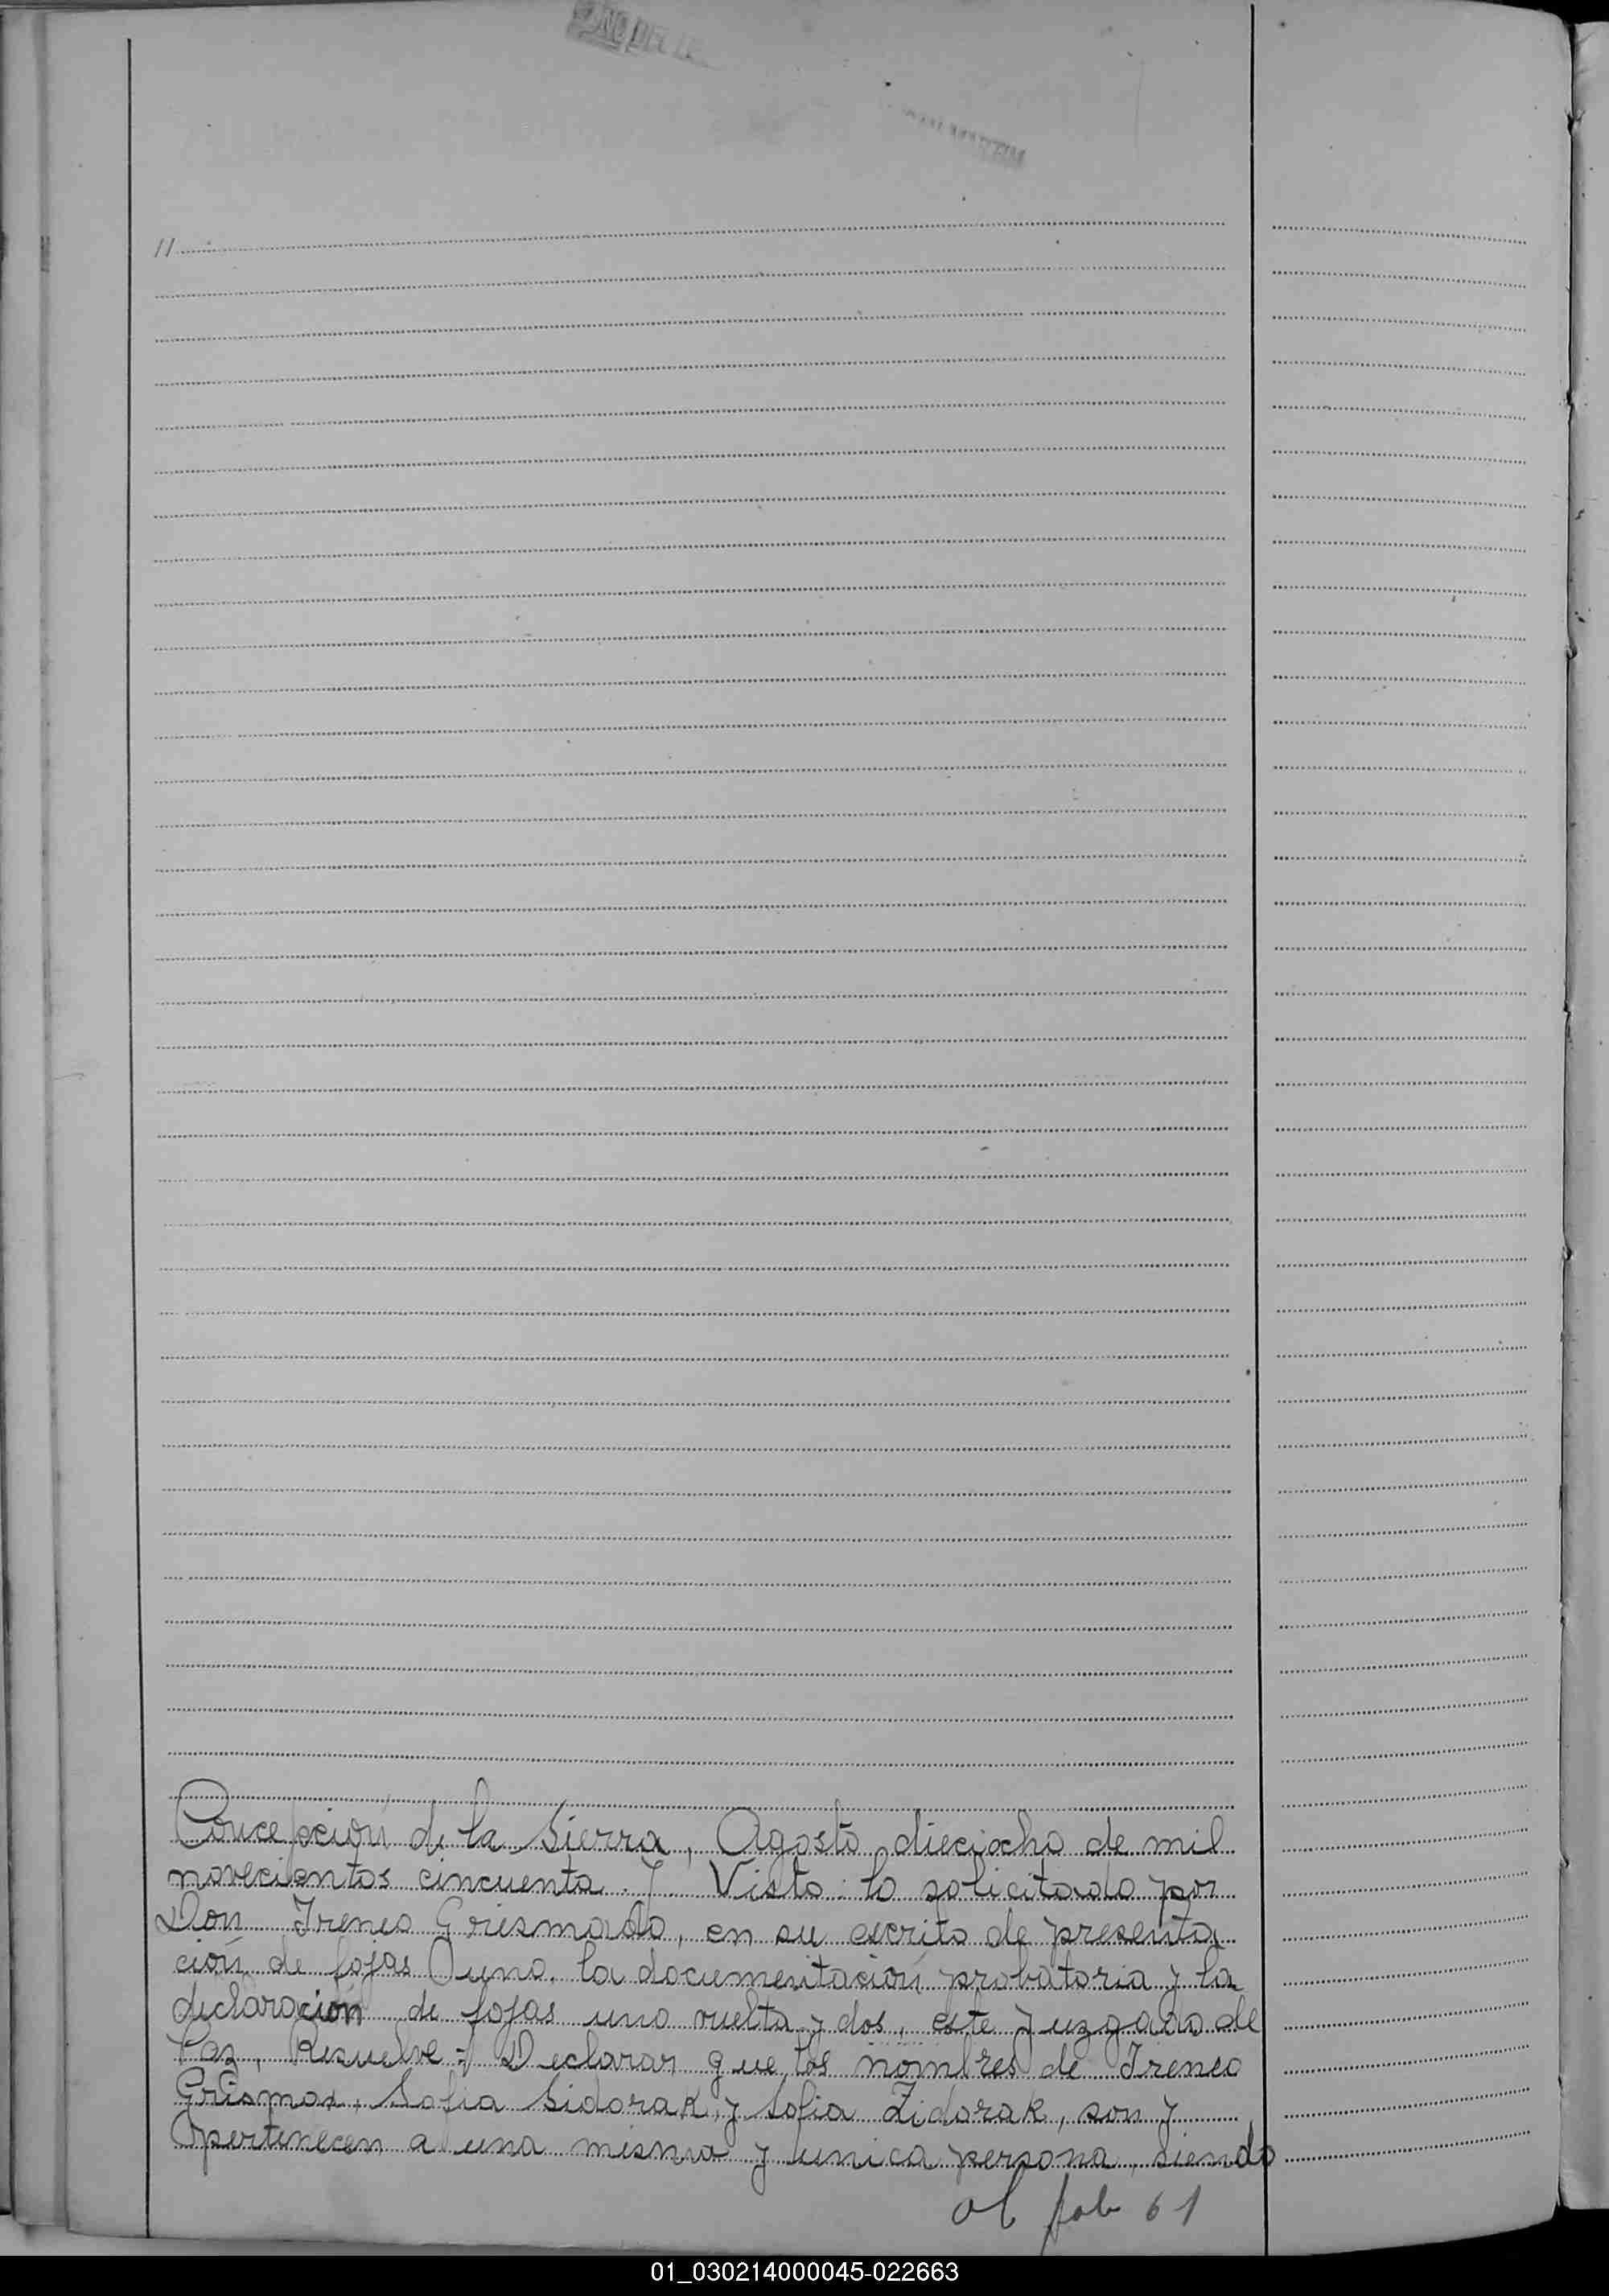 11
Concepción de la Sierra, Agosto dieciocho de mil
novecientos cincuenta. Y Visto: lo solicitado por
Don Ireneo Griesmado, en su escrito de presenta
ción de fojas uno, la documentación probatoria y la
declaración de fojas uno vuelta y dos, este Juzgado de
Paz, Resuelve: Declarar que los nombres de Ireneo
Grismar, Sofia Sidorak, y Sofia Zidorak, son y
pertenecen a una misma y unica persona, siendo
al fol 61
01_030214000045-022663